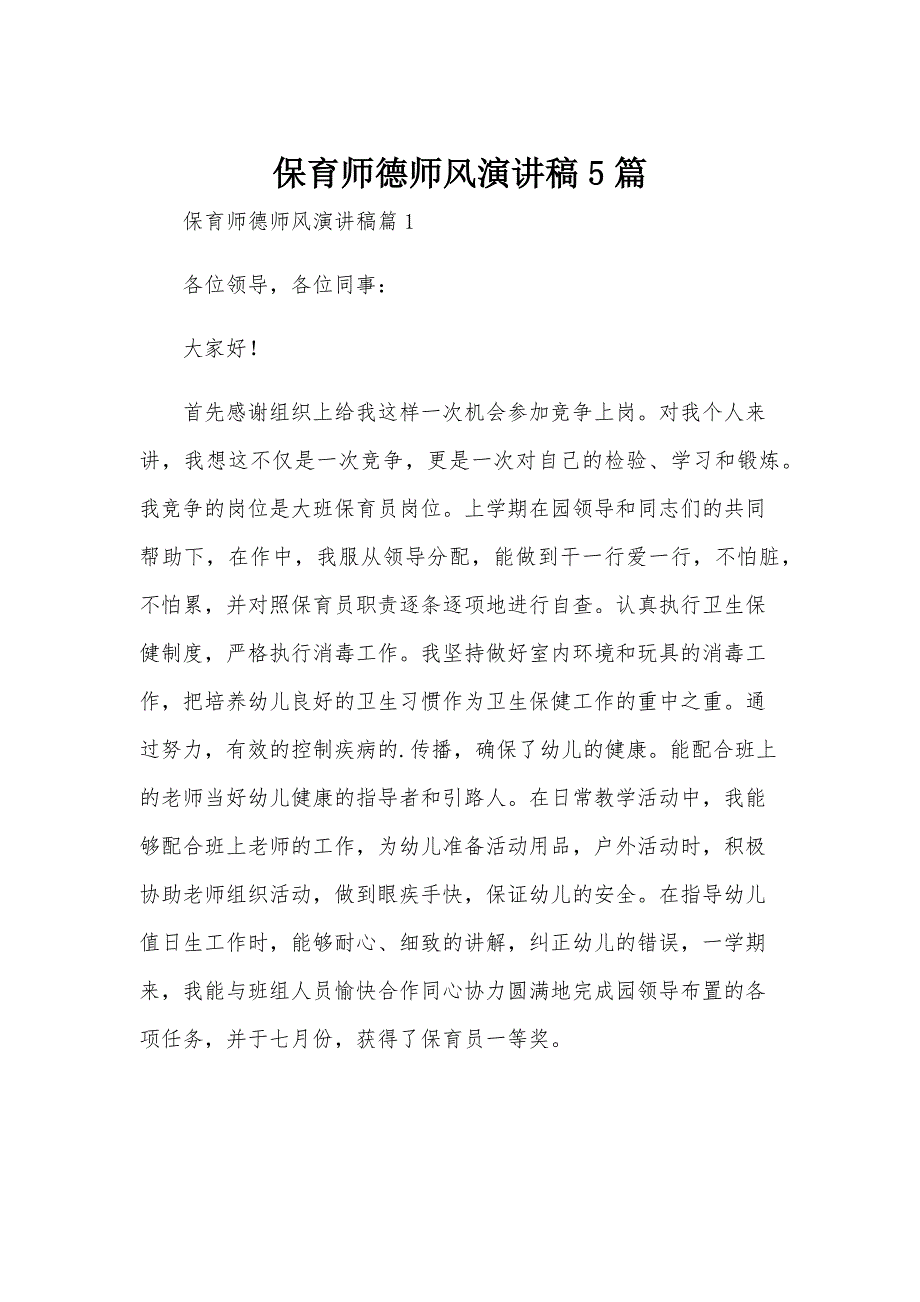 保育师德师风演讲稿 5 篇
保育师德师风演讲稿篇 1
各位领导，各位同事：
大家好！
首先感谢组织上给我这样一次机会参加竞争上岗。对我个人来
讲，我想这不仅是一次竞争，更是一次对自己的检验、学习和锻炼。
我竞争的岗位是大班保育员岗位。上学期在园领导和同志们的共同
帮助下，在作中，我服从领导分配，能做到干一行爱一行，不怕脏，
不怕累，并对照保育员职责逐条逐项地进行自查。认真执行卫生保
健制度，严格执行消毒工作。我坚持做好室内环境和玩具的消毒工
作，把培养幼儿良好的卫生习惯作为卫生保健工作的重中之重。通
过努力，有效的控制疾病的.传播，确保了幼儿的健康。能配合班上
的老师当好幼儿健康的指导者和引路人。在日常教学活动中，我能
够配合班上老师的工作，为幼儿准备活动用品，户外活动时，积极
协助老师组织活动，做到眼疾手快，保证幼儿的安全。在指导幼儿
值日生工作时，能够耐心、细致的讲解，纠正幼儿的错误，一学期
来，我能与班组人员愉快合作同心协力圆满地完成园领导布置的各
项任务，并于七月份，获得了保育员一等奖。